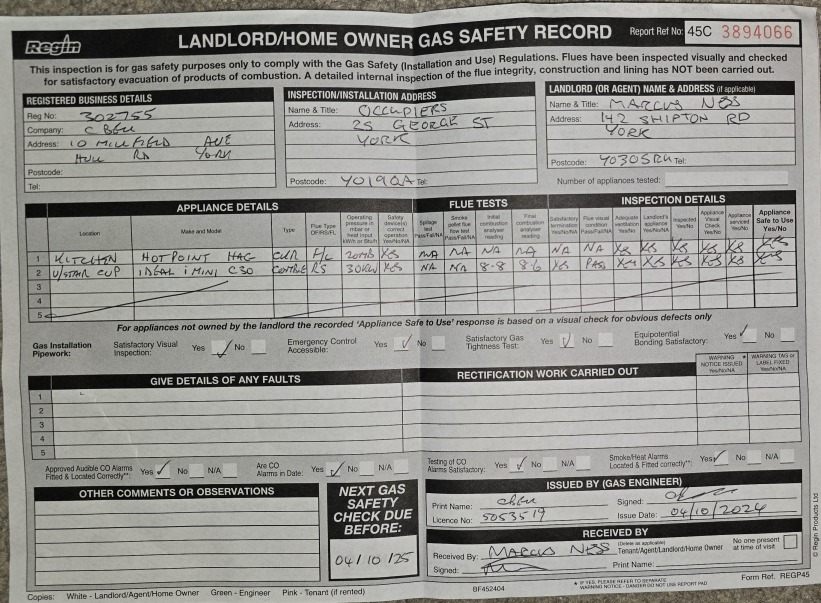 Regin
LANDLORD/HOME OWNER GAS SAFETY RECORD
Report Ref No: 45C 3894066
This inspection is for gas safety purposes only to comply with the Gas Safety (Installation and Use) Regulations. Flues have been inspected visually and checked
for satisfactory evacuation of products of combustion. A detailed internal inspection of the flue integrity, construction and lining has NOT been carried out.
REGISTERED BUSINESS DETAILS
Reg No: 302755
Company:
Address: 10 MILLFIELD AVE
HULL RD YORK
Postcode:
Tel:
INSPECTION/INSTALLATION ADDRESS
Name & Title: OCCUPIERS
Address: 25 GEORGE ST
YORK
Postcode: YO19QA Tel:
LANDLORD (OR AGENT) NAME & ADDRESS (if applicable)
Name & Title: MARCUS NESS
Address: 142 SHIPTON RD
YORK
Postcode: YO305RU Tel:
Number of appliances tested:
APPLIANCE DETAILS FLUE TESTS INSPECTION DETAILS
Location Make and Model Type Flue Type OF/RS/FL Operating pressure in mbar or heat input kW/h or Btu/h Safety device(s) correct operation Yes/No/NA Spillage test Pass/Fail/NA Smoke pellet flue flow test Pass/Fail/NA Initial combustion analyser reading Final combustion analyser reading Satisfactory termination Yes/No/NA Flue visual condition Pass/Fail/NA Adequate ventilation Yes/No Landlord's appliance Yes/No/NA Inspected Yes/No Appliance Visual Check Yes/No Appliance serviced Yes/No Appliance Safe to Use Yes/No
1 KITCHEN HOTPOINT HAG F/L 20mb YES NA NA NA NA NA NA Yes YES YES YES YES YES
2 U/STAIR CUP IDEAL iMINI C30 RS 30KW YES NA NA 8-8 8-6 YES PASS YES YES YES YES YES YES
3
4
5
For appliances not owned by the landlord the recorded 'Appliance Safe to Use' response is based on a visual check for obvious defects only
Gas Installation Pipework: Satisfactory Visual Inspection: Yes ✓ No Emergency Control Accessible: Yes ✓ No Satisfactory Gas Tightness Test: Yes ✓ No Equipotential Bonding Satisfactory: Yes ✓ No
GIVE DETAILS OF ANY FAULTS RECTIFICATION WORK CARRIED OUT WARNING * NOTICE ISSUED Yes/No/NA WARNING TAG or LABEL FIXED Yes/No/NA
1
2
3
4
5
Approved Audible CO Alarms Fitted & Located Correctly**: Yes ✓ No N/A Are CO Alarms in Date: Yes ✓ No N/A Testing of CO Alarms Satisfactory: Yes ✓ No N/A Smoke/Heat Alarms Located & Fitted correctly**: Yes ✓ No N/A
OTHER COMMENTS OR OBSERVATIONS
NEXT GAS
SAFETY
CHECK DUE
BEFORE:
04/10/25
ISSUED BY (GAS ENGINEER)
Print Name: Signed:
Licence No: 5053519 Issue Date: 04/10/2024
RECEIVED BY
Received By: MARCUS NESS (Delete as applicable) Tenant/Agent/Landlord/Home Owner No one present at time of visit
Signed: Print Name:
Copies: White - Landlord/Agent/Home Owner Green - Engineer Pink - Tenant (if rented)
BF452404
* IF YES, PLEASE REFER TO SEPARATE
WARNING NOTICE - DANGER DO NOT USE REPORT PAD
Form Ref. REGP45
© Regin Products Ltd